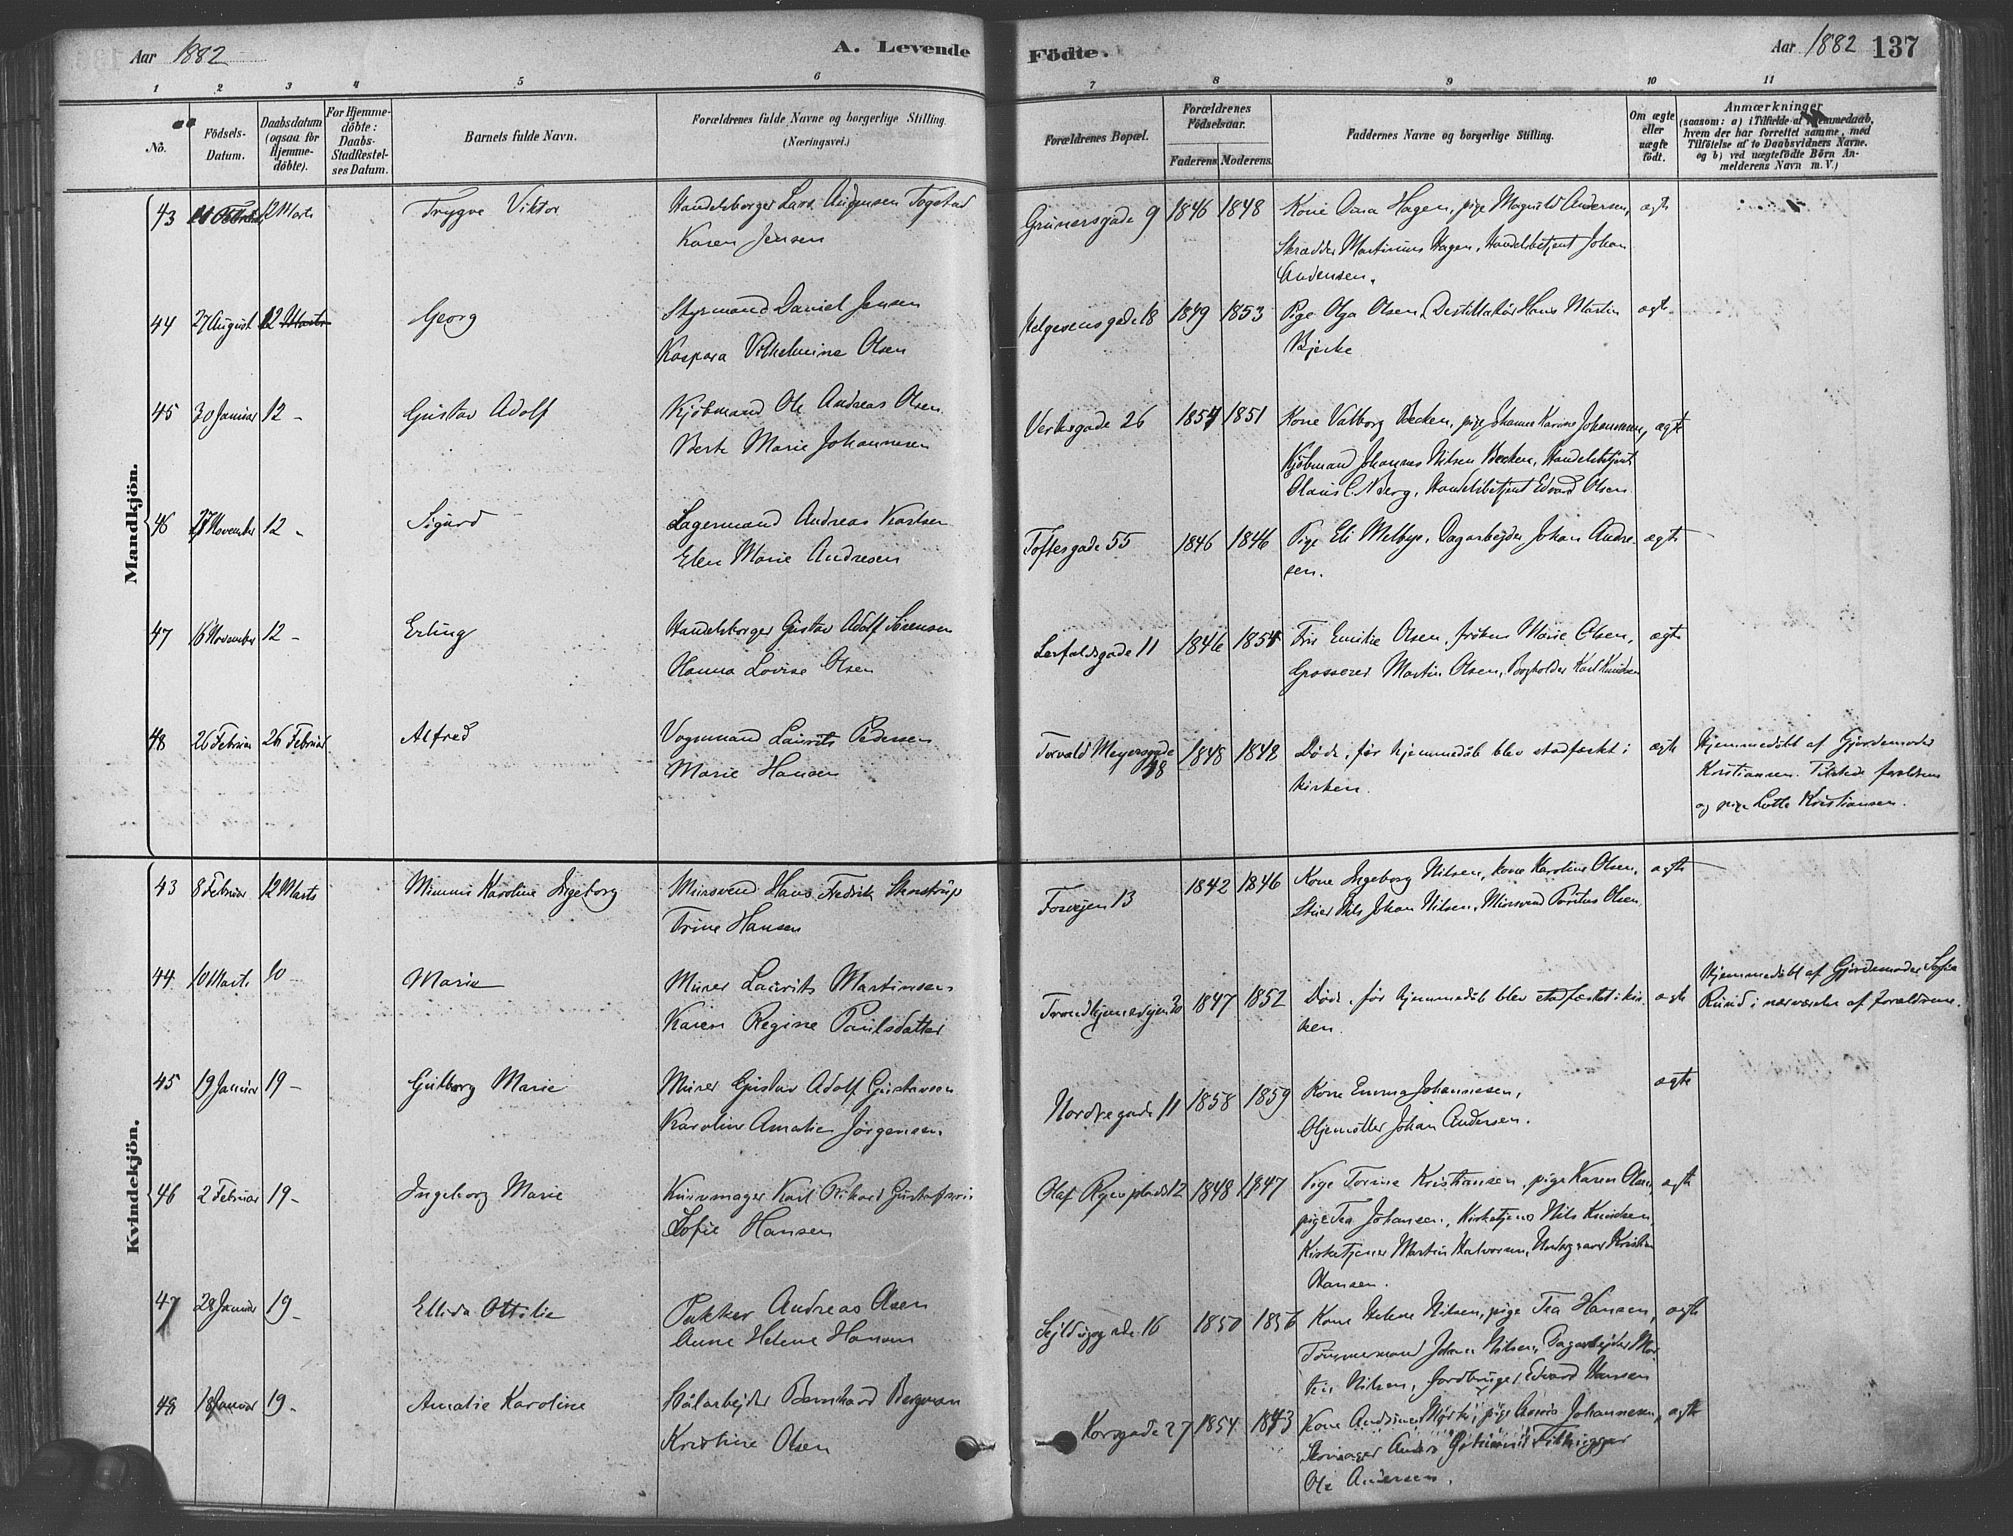 Aar 1882
A. Levende
Födte.
Aar 1882 137
1 2 3 4 5 6 7 8 9 10 11
No.
Födsels-
Datum.
Daabsdatum
(ogsaa for
Hjemme-
döbte).
For Hjemme-
döbte:
Daabs-
Stadfæstel-
ses Datum.
Barnets fulde Navn.
Forældrenes fulde Navne og borgerlige Stilling.
(Næringsvei.)
Forældrenes Bopæl.
Forældrenes
Födselsaar.
Faderens. Moderens.
Faddernes Navne og borgerlige Stilling.
Om ægte
eller
uægte
født.
Anmærkninger
(saasom: a) i Tilfælde af Hjemmedaab,
hvem der har forrettet samme, med
Tilföielse af to Daabsvidners Navne.
og b) ved uægtefödte Börn An-
melderens Navn m. V.)
Mandkjön.
43 Februar 12 Marts Trygve Viktor Handelsborger Lars Fogstad
Karen Jensen
Grünersgade 9 1846 1848 Kone Hagen, pige Magnild Andersen, ægte
Skrædder Martinius Hagen, Handelsbetjent Johan
Andersen.
44 27 August 12 Marts Georg Styrmand Daniel Jensen
Kaspara Vilhelmine Olsen
Helgesensgade 18 1849 1853 Pige Olga Olsen, Destillatör Hans Martin ægte
Bjerke
45 30 Januar 12 - Gustav Adolf Kjöbmand Ole Andreas Olsen
Berte Marie Johannesen
Verksgade 26 1854 1851 Kone Valborg Becken, pige Johanne Karine Johannesen, ægte
Kjöbmand Johannes Nilsen Becken, Handelsbetjent
Olaus C. N. Berg, Handelsbetjent Edvard Olsen
46 27 November 12 - Sigurd Lagermand Andreas Karlsen
Elen Marie Andresen
Toftesgade 55 1846 1846 Pige Eli Melbye, Dagarbejder Johan Andre- ægte
sen.
47 16 November 12 - Erling Handelsborger Gustav Adolf Sörensen
Hanna Lovise Olsen
Lerfaldsgade 11 1846 1854 Fru Emilie Olsen, fröken Marie Olsen, ægte
Grosserer Martin Olsen, Bogholder Karl Knudsen
48 26 Februar 26 Februar Alfred Vognmand Laurits Pedersen
Marie Hansen
Torvald Meyersgade
48 1848 1842 Döde, för hjemmedåb blev stadfæstet i ægte
kirken.
Hjemmedöbt af Gjordemoder
Kristiansen. Tilstede forældrene
og pige Lotte Kristiansen.
Kvindekjön.
43 8 Februar 12 Marts Minnus Karoline Ingeborg Mursvend Hans Fredrik Skostrup
Trine Hansen
Fosvejen 13 1842 1846 Kone Ingeborg Nilsen, kone Karoline Olsen, ægte
Nils Johan Nilsen, Mursvend Olsen.
44 10 Marts 10 - Marie Murer Laurits Martinsen
Karen Regine Paulsdatter
Trondhjemsvejen 30 1847 1852 Döde, för hjemmedåb blev stadfæstet i kir- ægte
ken.
Hjemmedöbt af Gjordemoder Sofie
Rund i nærværelse af forældrene.
45 19 Januar 19 - Gulborg Marie Murer Gustav Adolf Gustavsen
Karoline Amalie Jörgensen
Nordregade 11 1858 1859 Kone Emma Johannesen, ægte
Oljemöller Johan Andersen.
46 2 Februar 19 - Ingeborg Marie Kurvmager Karl Rikard Gustafsen
Sofie Hansen
Olaf Ryes plads 12 1848 1847 Pige Torine Kristiansen, pige Karen Olsen, ægte
pige Tea Johansen, Kirketjener Nils Knudsen,
Kirketjener Martin Halvorsen, Kristian
Hansen.
47 28 Januar 19 - Ellida Ottilie Pakker Andreas Olsen
Anne Helene Hansen
Sejldugsgade 16 1850 1856 Kone Helene Nilsen, pige Tea Hansen, ægte
Tömmermand Johan Nilsen, Dagarbejder Mar-
tin Nilsen, Jordbruger Edvard Hansen
48 18 Januar 19 - Amalie Karoline Stålarbejder Bernhard Bergman
Kristine Olsen
Korsgade 27 1854 1853 Kone pige Johannesen, ægte
Skomager
Ole Andersen.